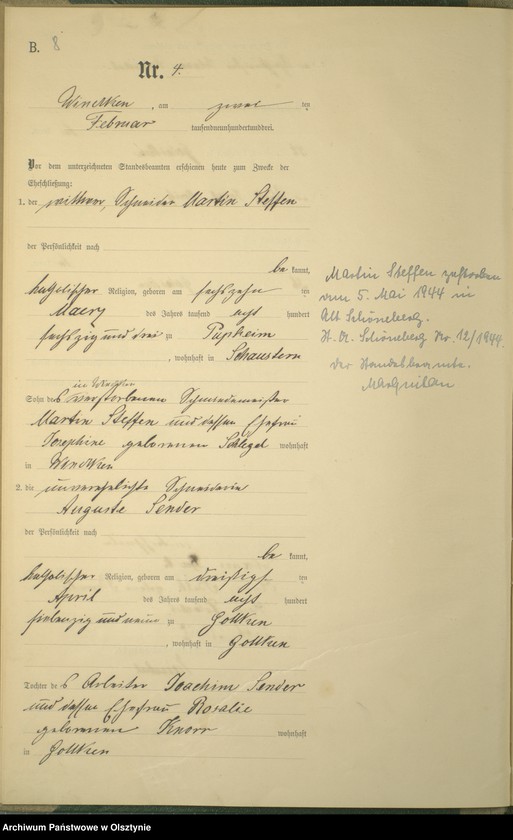 B. 8
Nr. 4.
am zwei ten
Februar tausendneunhundertunddrei.
Vor dem unterzeichneten Standesbeamten erschienen heute zum Zwecke der
Eheschließung:
1. der Wittwer, Schneider Martin Steffen
der Persönlichkeit nach
be kannt,
katholischer Religion, geboren am sechszehn ten
Maerz des Jahres tausend acht hundert
sechszig und drei zu
, wohnhaft in Schaustern
Sohn des verstorbenen Schmiedemeister
Martin Steffen und dessen Ehefrau
Josephine geborenen Schlegel wohnhaft
in
2. die unverehelichte Schneiderin
Auguste Sender
der Persönlichkeit nach
be kannt,
katholischer Religion, geboren am dreißigst ten
April des Jahres tausend acht hundert
siebenzig und neun zu Gottken
, wohnhaft in Gottken
Tochter des Arbeiter Joachim Sender
und dessen Ehefrau Rosalie
geborenen Knorr wohnhaft
in Gottken
Martin Steffen verstorben
am 5. Mai 1944 in
Alt Schöneberg.
St. A. Schöneberg Nr. 12/1944.
Der Standesbeamte.
Archiwum Państwowe w Olsztynie